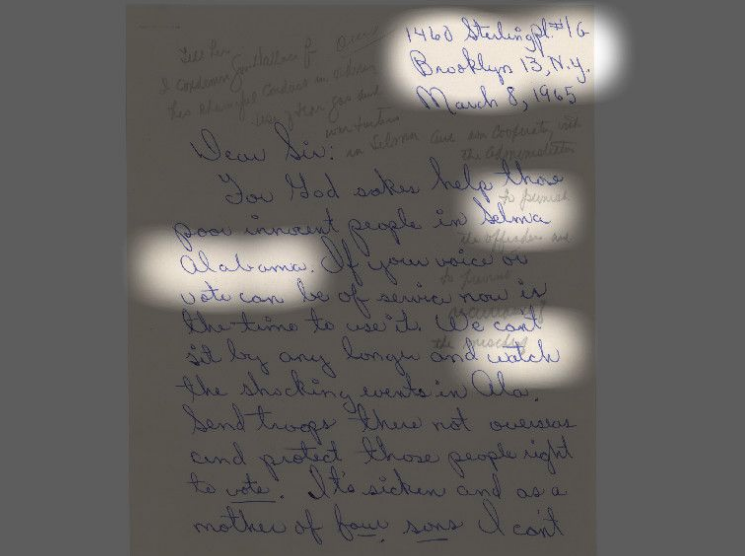 1460 Sterling pl. #1G
Brooklyn 13, N.Y.
March 8, 1965
Tell her
I condemn
his shameful conduct in
in Selma
the Administration
Dear Sir:
For God sakes help those
to punish
poor innocent people in Selma
the offenders and
Alabama. If your voice or
to prevent
vote can be of service now is
the time to use it. We cant
sit by any longer and watch
the shocking events in Ala.
Send troops there not overseas
and protect those people right
to vote. It's sicken and as a
mother of four sons I can't